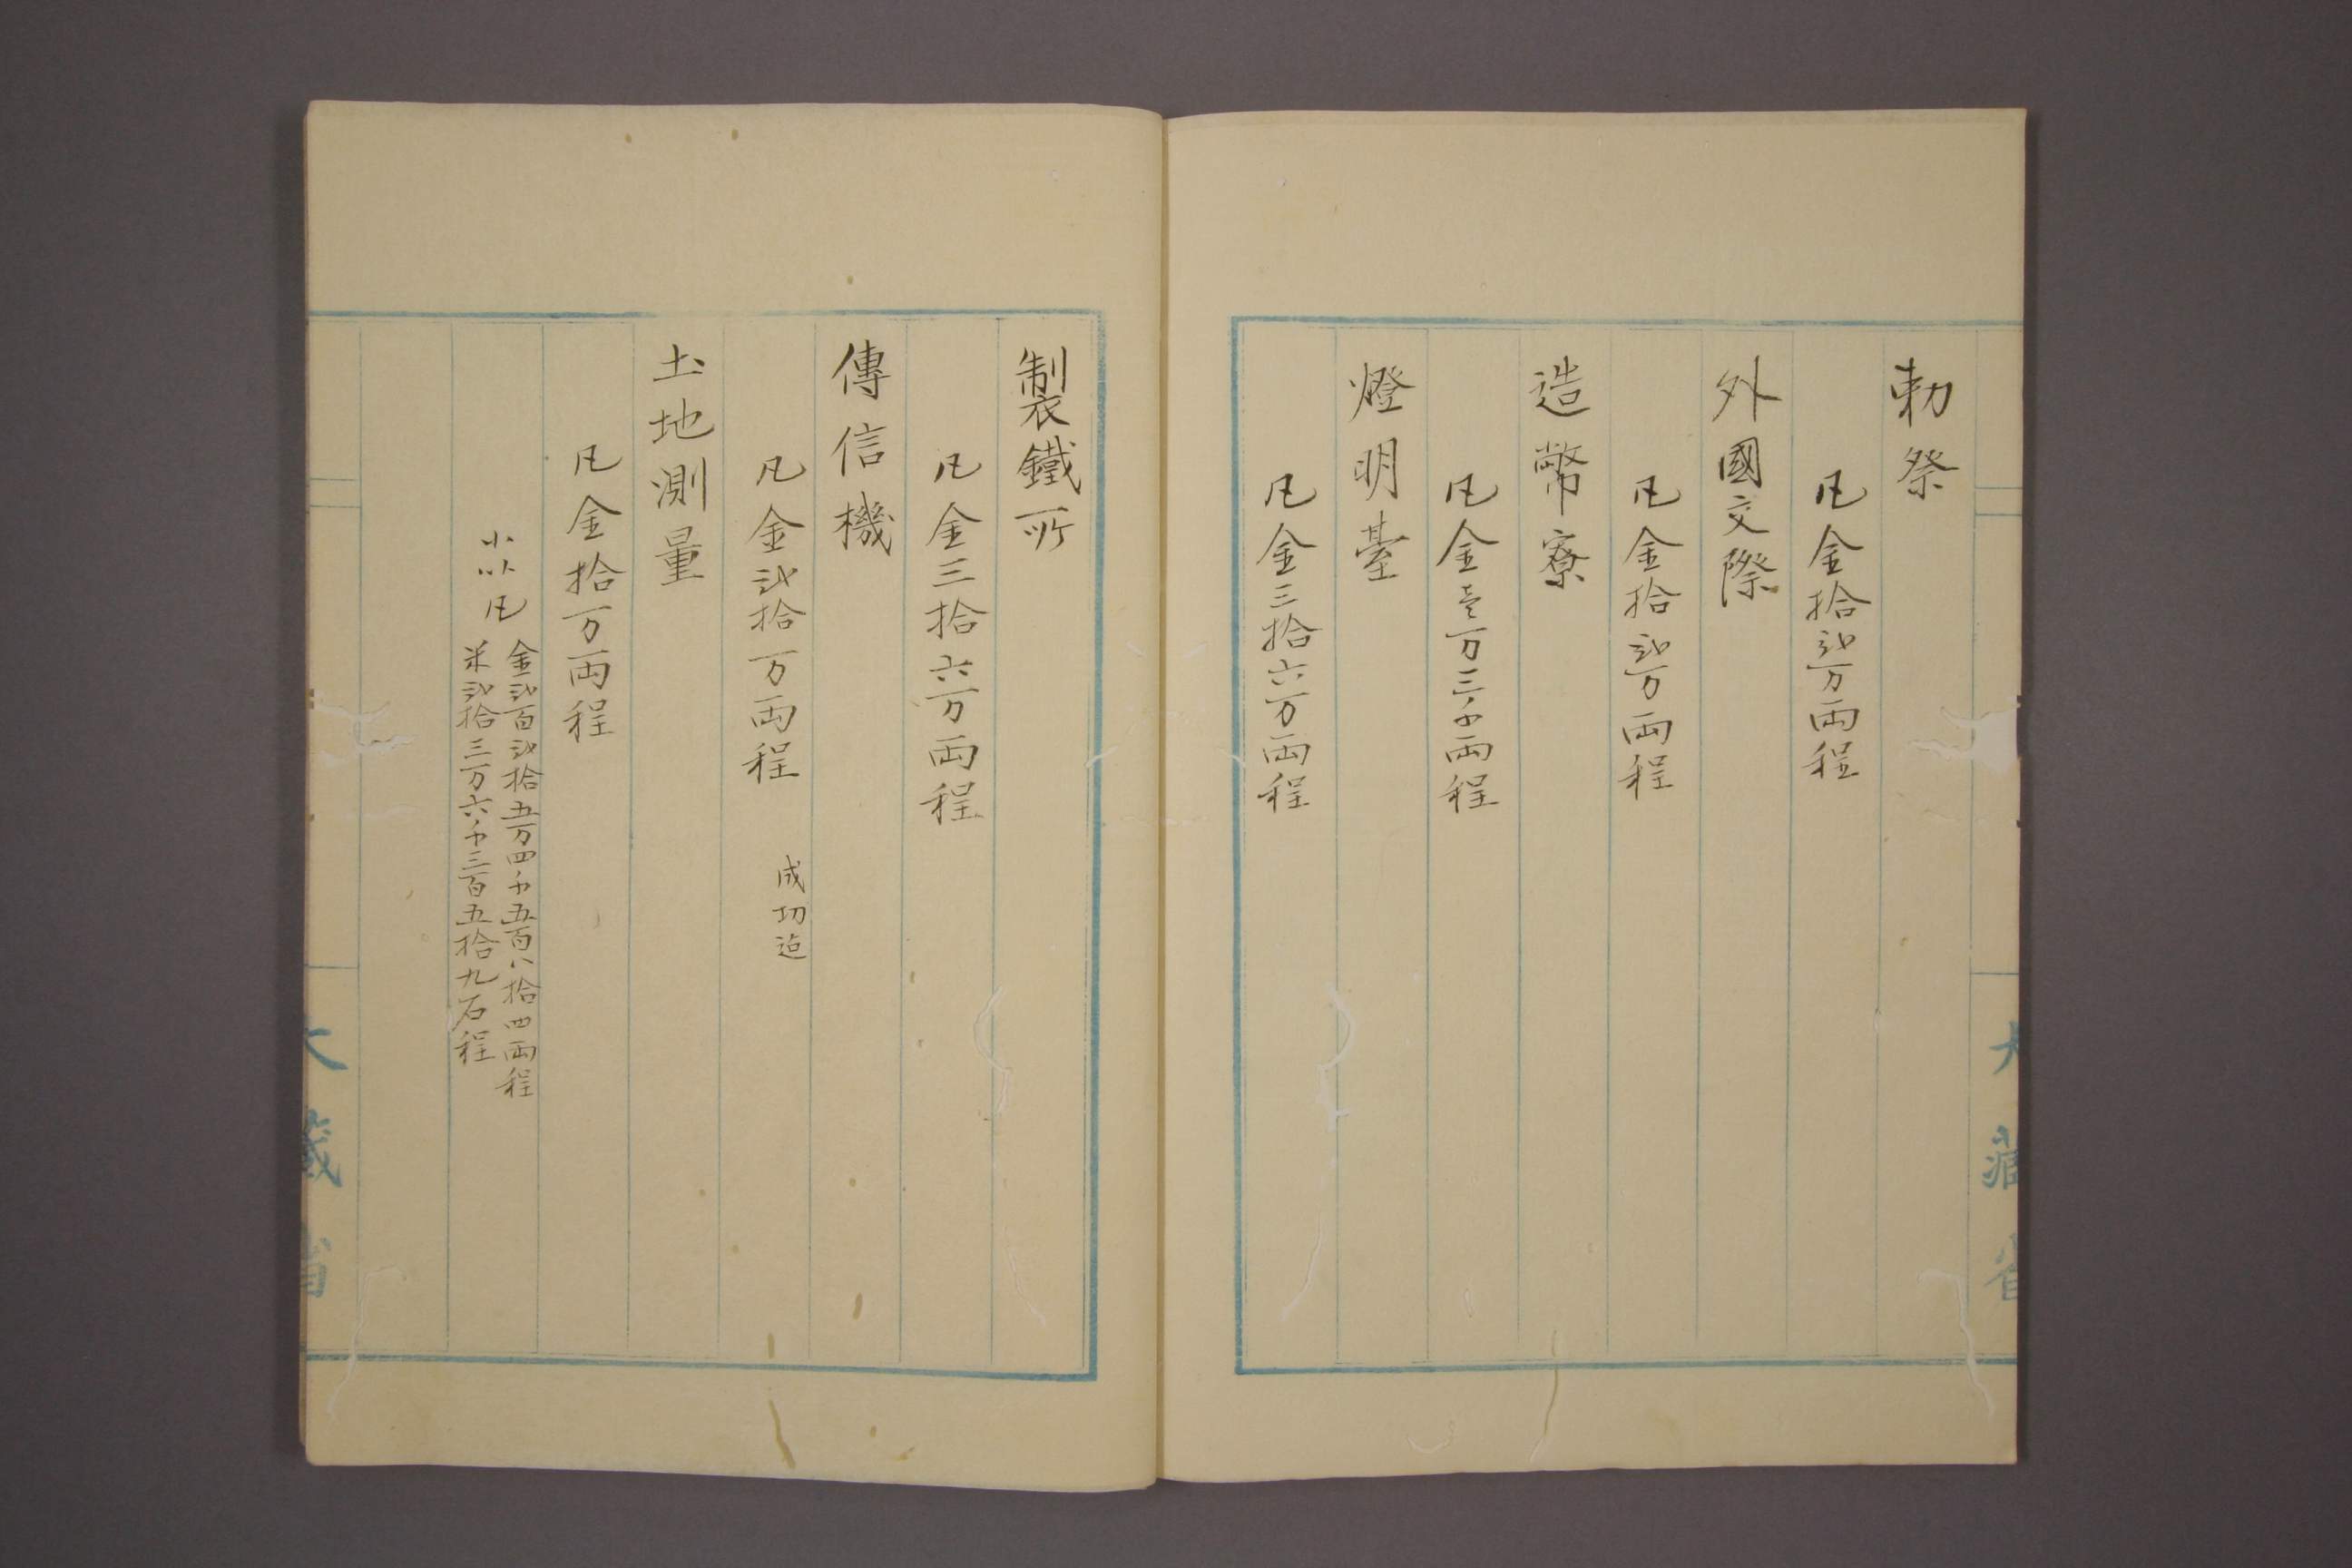 勅祭
凡金拾弐万両程
外國交際
凡金拾弐万両程
造幣寮
凡金壱万三千両程
燈明臺
凡金三拾六万両程
製鐵所
凡金三拾六万両程
傳信機
凡金弐拾万両程 成功迄
土地測量
凡金拾万両程
小以凡
金弐百弐拾五万四千五百八拾四両程
米弐拾三万六千三百五拾九石程
大藏省
大藏省